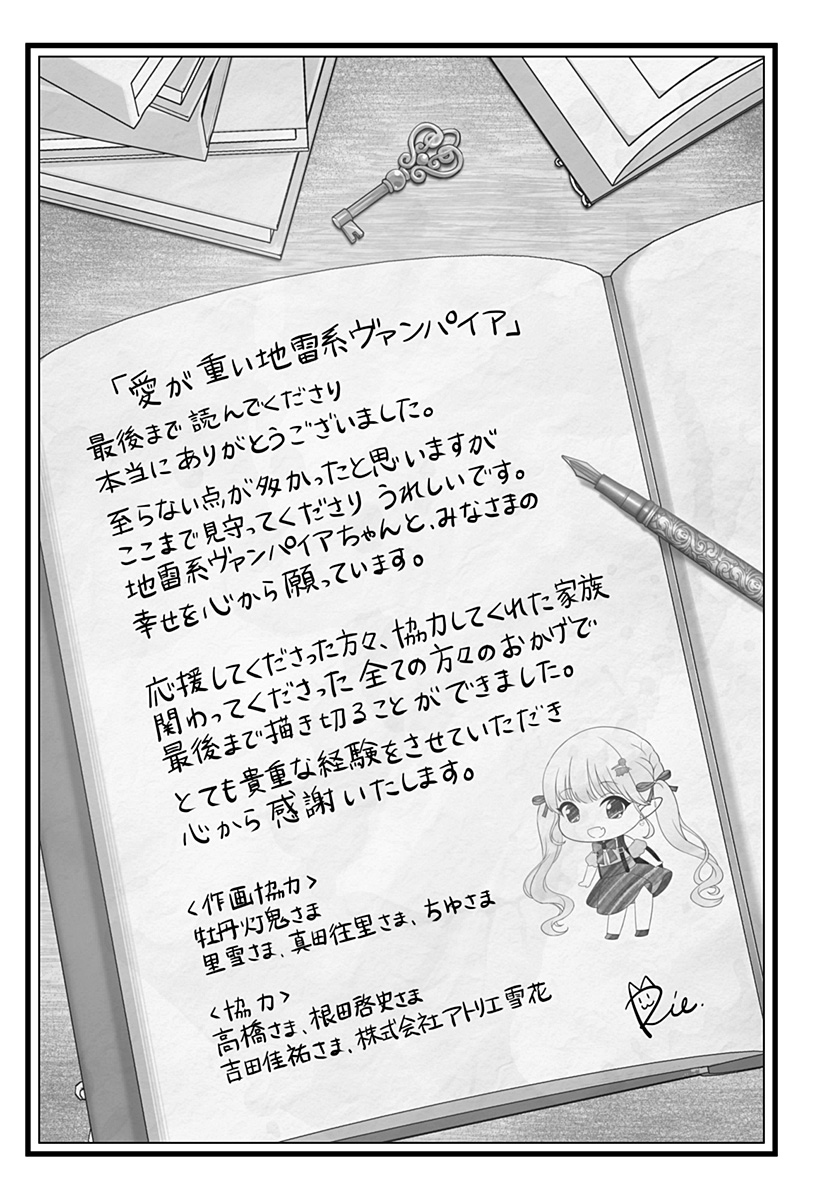 「愛が重い地雷系ヴァンパイア」
最後まで読んでくださり
本当にありがとうございました。
至らない点が多かったと思いますが
ここまで見守ってくださりうれしいです。
地雷系ヴァンパイアちゃんと、みなさまの
幸せを心から願っています。
応援してくださった方々、協力してくれた家族
関わってくださった全ての方々のおかげで
最後まで描き切ることができました。
とても貴重な経験をさせていただき
心から感謝いたします。
〈作画協力〉
牡丹灯鬼さま
里雪さま、真田往里さま、ちゆさま
〈協力〉
高橋さま、根田啓史さま
吉田佳祐さま、株式会社アトリエ雪花
Rie.